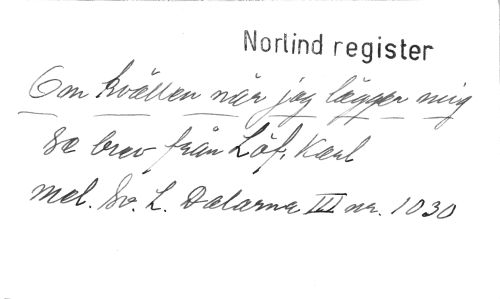 Norlind register
Om kvällen när jag lägger mig
Se brev från Löf, Karl
mel. Sv. L. Dalarna III nr. 1030